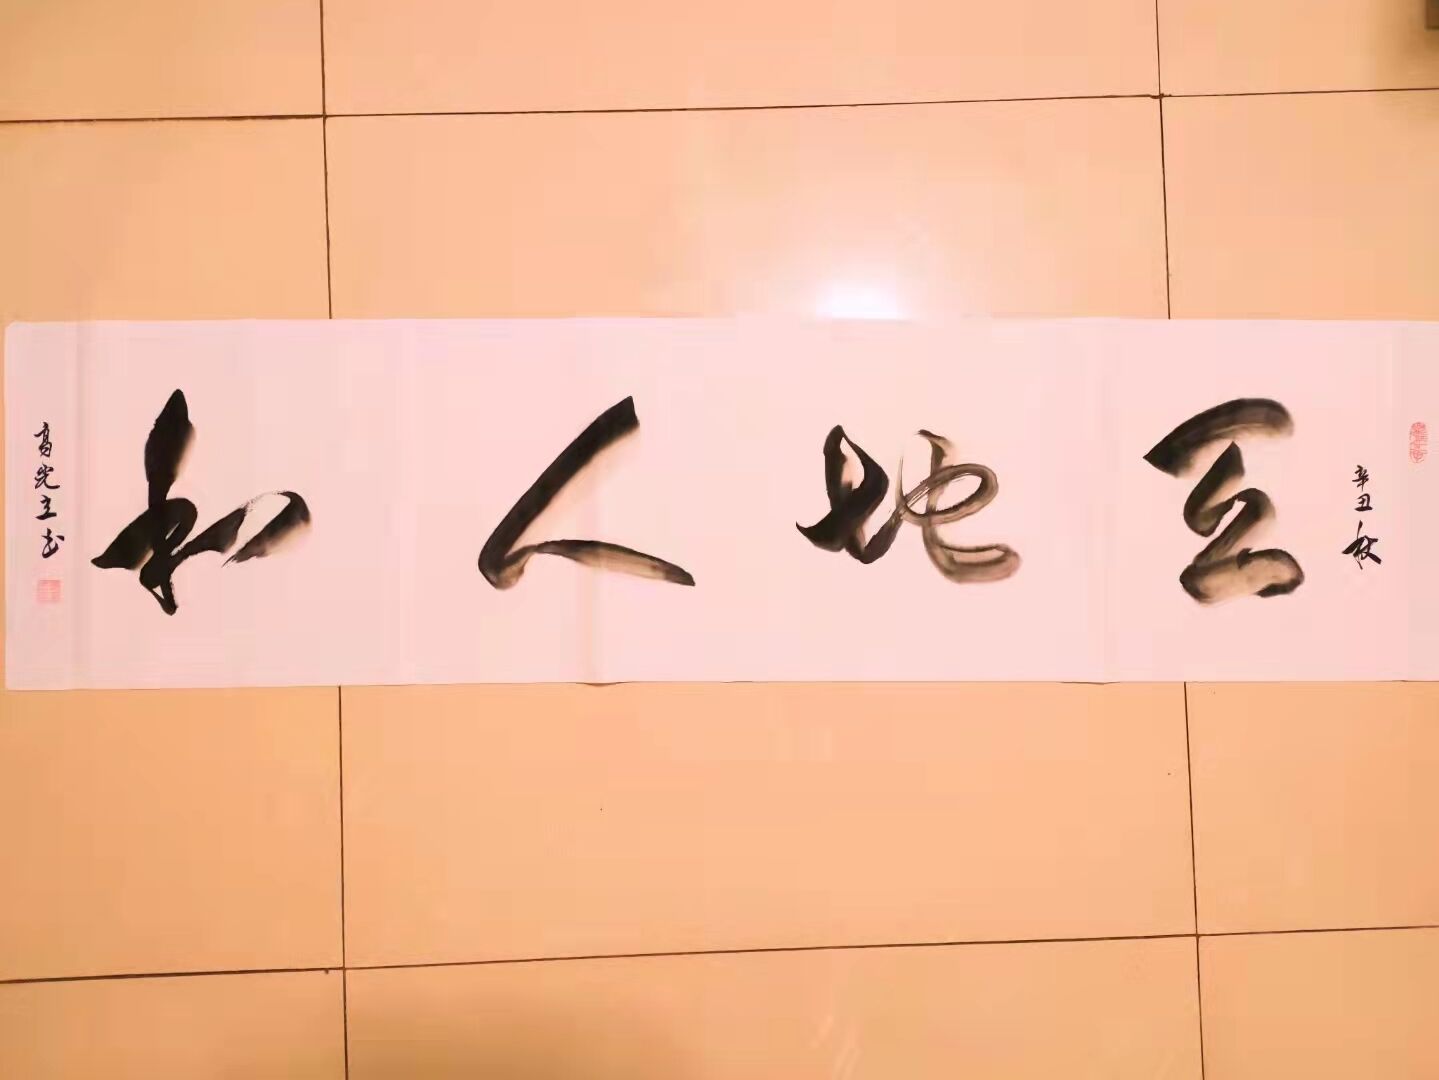 辛丑秋
天地人和
高光立书